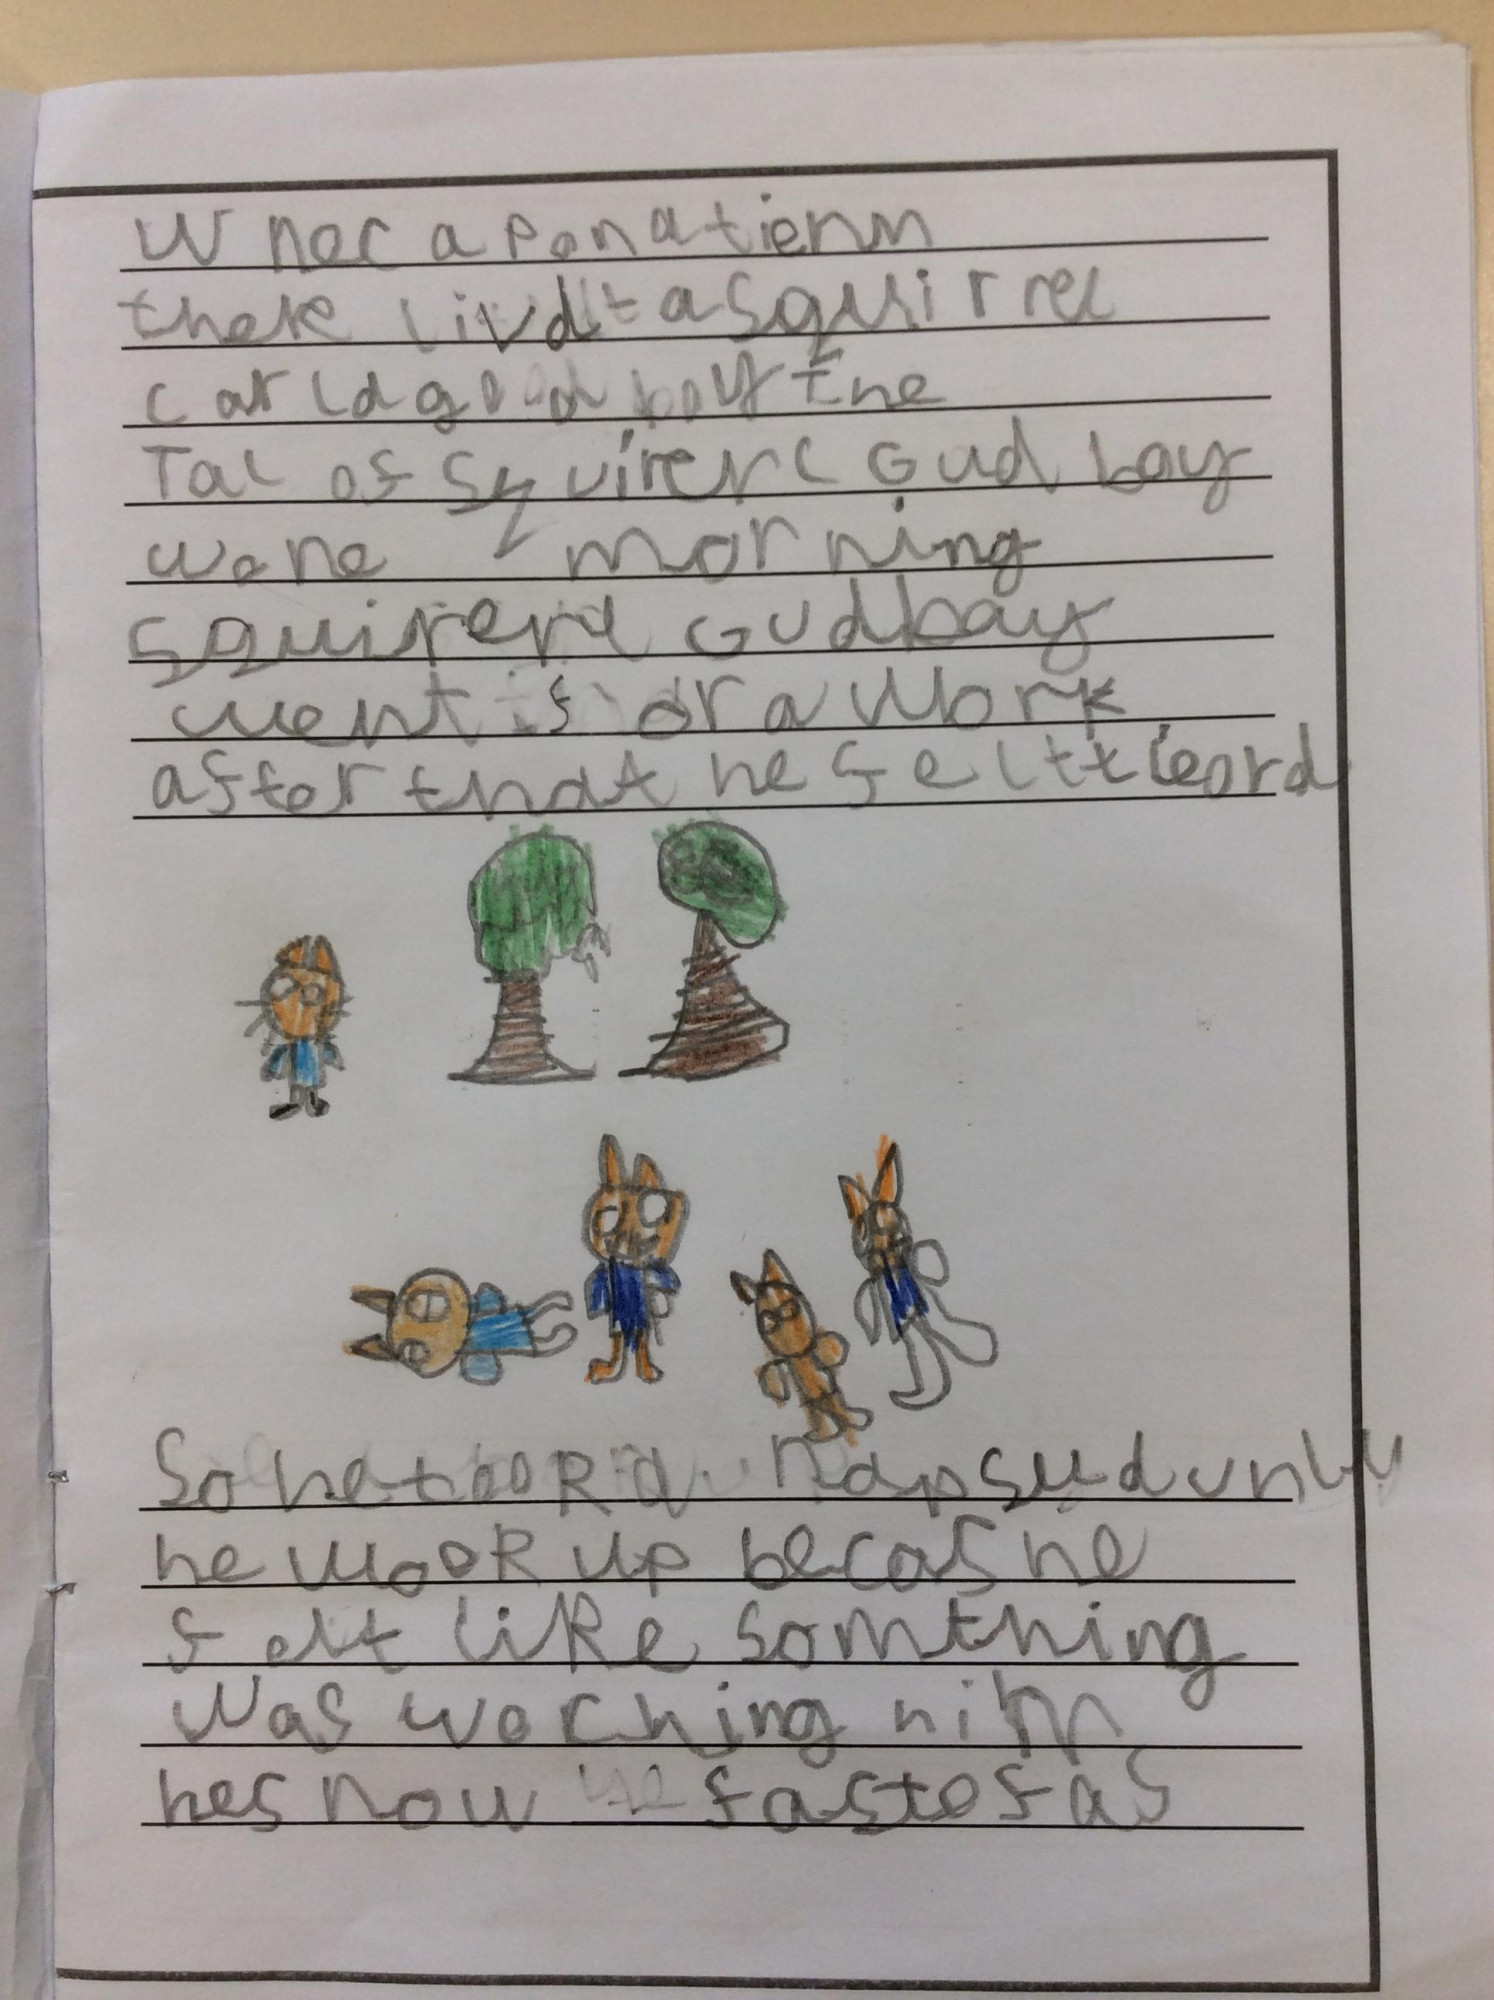 wnec a pon a tienm
there livd a squirrel
carld good bay the
Tal of Squirerl Gud bay
wone morning
squirerl Gud bay
went for a work
after that he felt tieord
So he toor a nap sudunly
he woor up becas he
felt like somthing
was worching him
hes now fast ofas